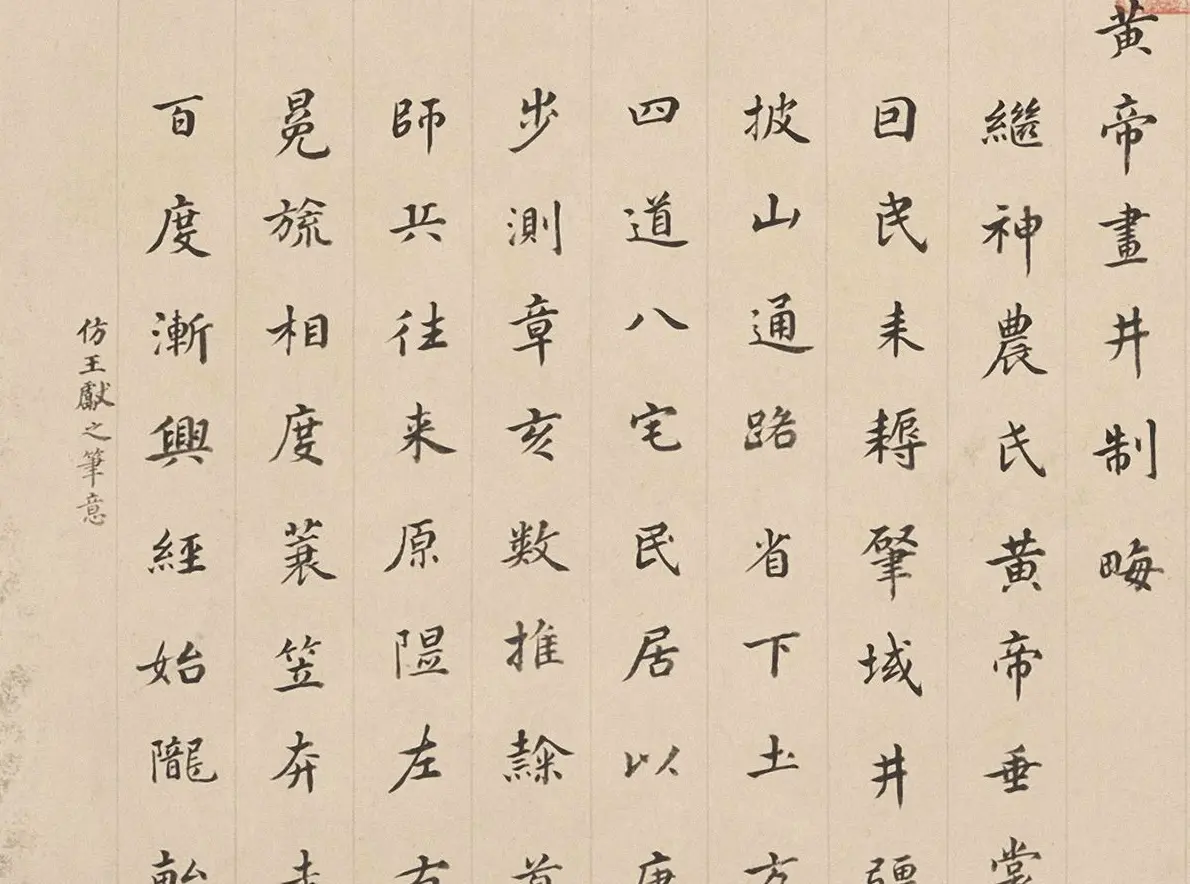 黃帝畫井制畮
繼神農氏黃帝垂裳
回民耒耨肇域井疆
披山通路省下土方
四道八宅民居以康
步測章亥数推隸首
師兵往来原隰左右
冕旒相度蓑笠奔走
百度漸興經始隴畝
仿王獻之筆意